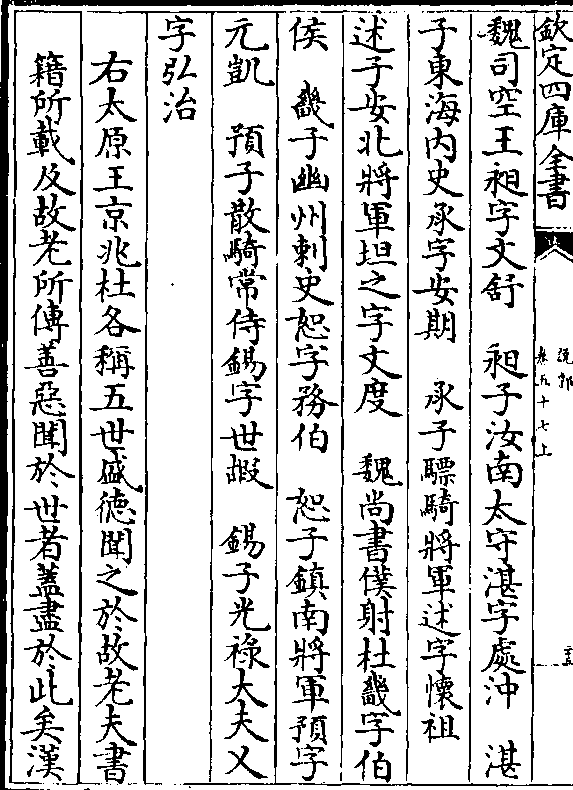 欽定四庫全書
說郛
卷五十七上
魏司空王昶字文舒　昶子汝南太守湛字處沖　湛
子東海內史承字安期　承子驃騎將軍述字懷祖
述子安北將軍坦之字文度　魏尚書僕射杜畿字伯
侯　畿子幽州刺史恕字務伯　恕子鎮南將軍預字
元凱　預子散騎常侍錫字世嘏　錫子光祿大夫乂
字弘治
右太原王京兆杜各稱五世盛德聞之於故老夫書
籍所載及故老所傳善惡聞於世者蓋盡於此矣漢